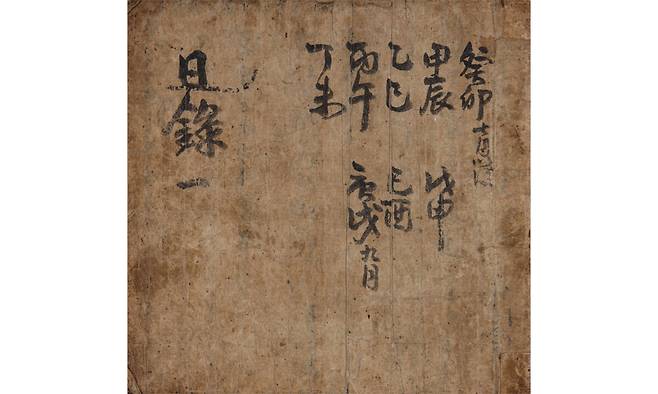 癸卯十月
甲辰 戊申
乙巳 己酉
丙午 庚戌九月
丁未
日錄 一